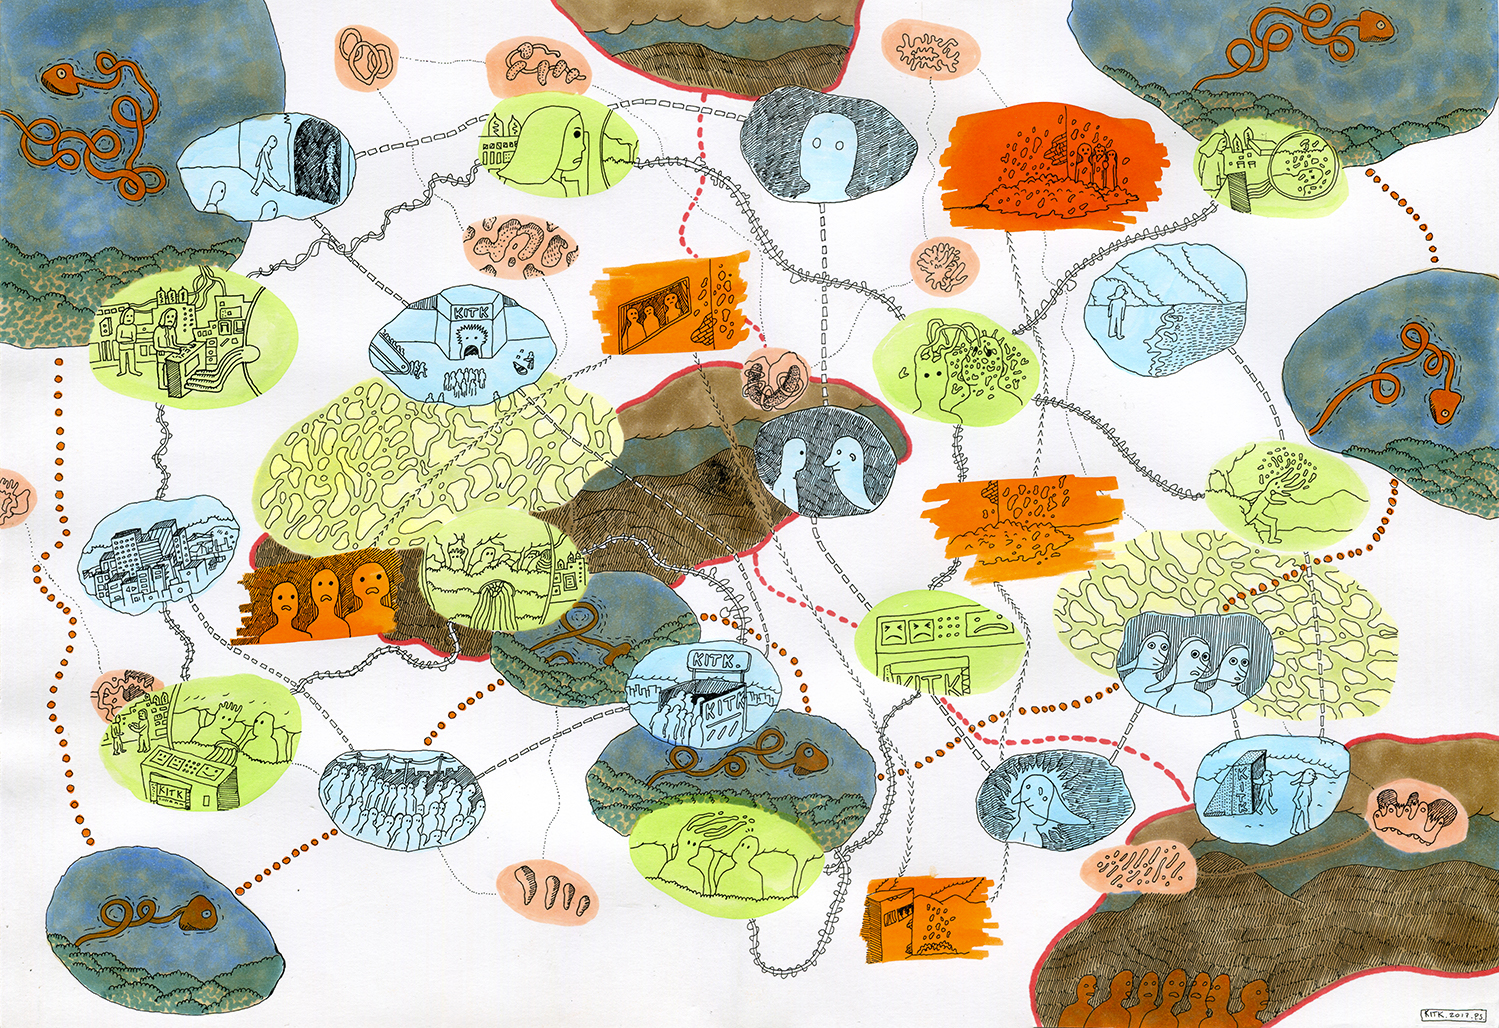 KITK
KITK.
KITK
KITK
KITK
KITK
KITK. 2017. PS